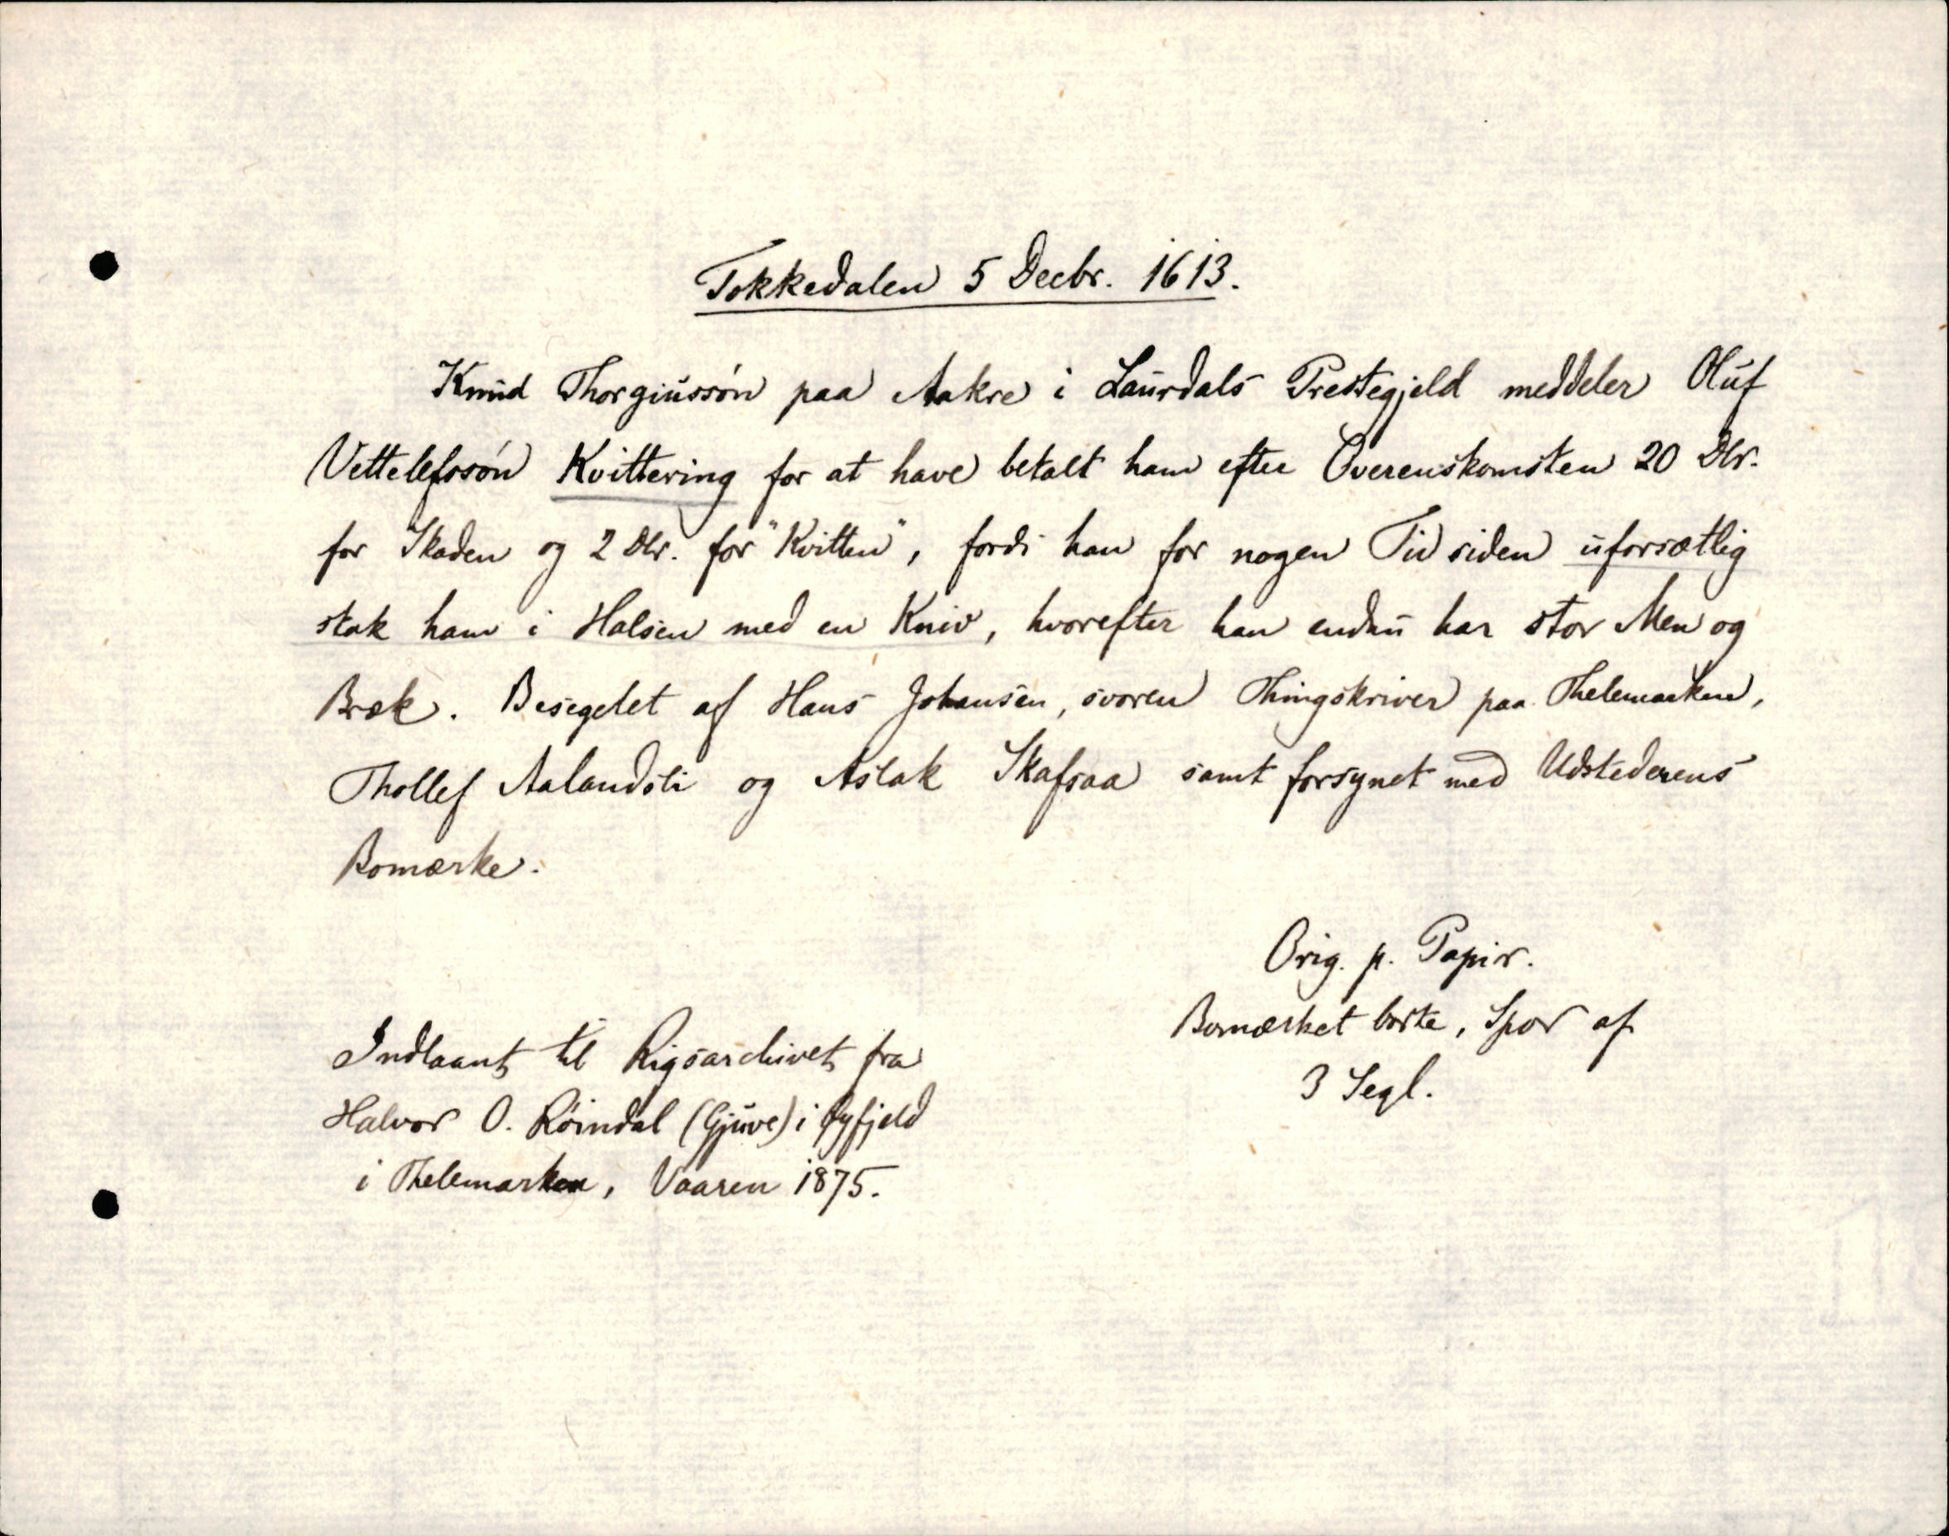 Tokkedalen 5 Decbr. 1613.
Knud Thorgiussøn paa Aakre i Laurdals Prestegjeld meddeler Oluf
Vettelefssøn Kvittering for at have betalt ham efter Overenskomsten 20 Dlr.
for Skaden og 2 Dlr. for "Kvitten", fordi han for nogen Tid siden uforsætlig
stak ham i Halsen med en Kniv, hvorefter han endnu har stor Men og
Bræk. Beseglet af Hans Johansen, svoren Thingskriver paa Thelemarken,
Thollef Aalandsli og Aslak Skafsaa samt forsynet med Udstederens
Bomærke.
Orig. p. Papir.
Bomærket borte, Spor af
3 Segl.
Indlaant til Rigsarchivet fra
Halvor O. Røindal (Gjuve) i Øyfjeld
i Thelemarken, Vaaren 1875.